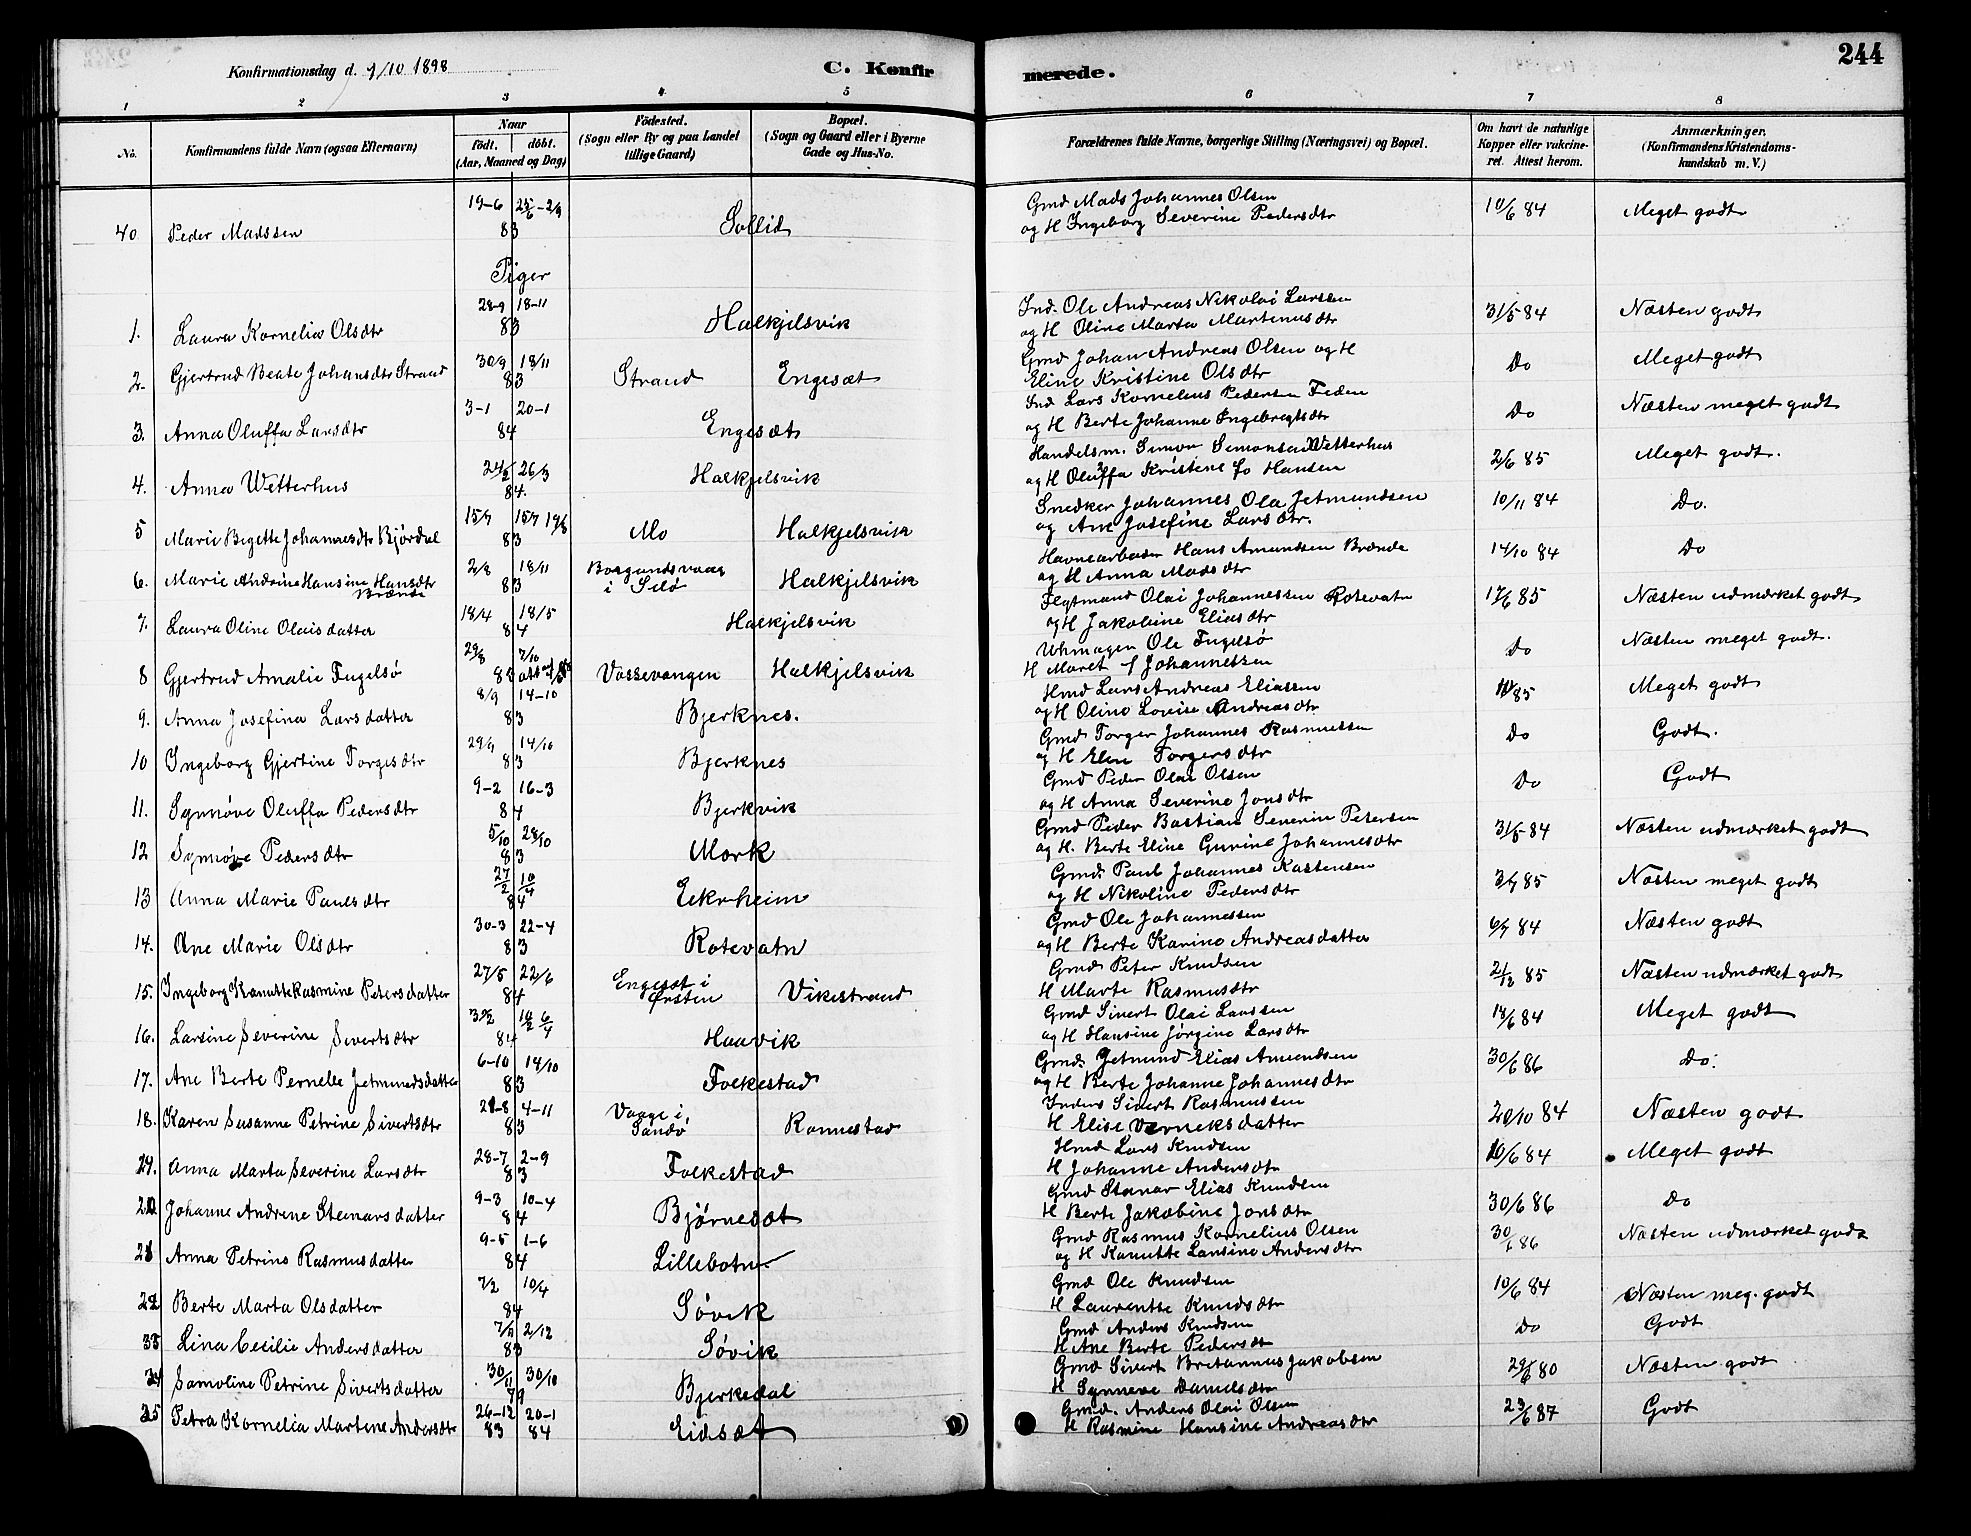 244
Konfirmationsdag d. 9/10 1898
C. Konfirmerede.
1 2 3 4 5 6 7 8
No.
Konfirmandens fulde Navn (ogsaa Efternavn)
Naar
födt. döbt.
(Aar, Maaned og Dag)
Födested.
(Sogn eller By og paa Landet
tillige Gaard)
Bopæl.
(Sogn og Gaard eller i Byerne
Gade og Hus-No.
Forældrenes fulde Navne, borgerlige Stilling (Næringsvei) og Bopæl.
Om havt de naturlige
Kopper eller vakcine-
ret. Attest herom.
Anmærkninger.
(Konfirmandens Kristendoms-
kundskab m. V.)
40 Peder Madssen 19-6 25/6-2/9 83 Sollid Gmd Mads Johannes Olsen
og H Ingeborg Severine Pedersdtr 10/6 84 Meget godt
Piger
1. Laura Kornelia Olsdtr 28-9 18-11 83 Halkjelsvik Ind. Ole Andreas Nikolai Larssen
og H Oline Marta Martenusdtr 31/5 84 Næsten godt
2. Gjertrud Beate Johansdtr Strand 30/9 18/11 83 Strand Engesæt Gmd Johan Andreas Olsen og H
Eline Kristine Olsdtr Do Meget godt
3. Anna Oluffa Larsdtr 3-1 20-1 84 Engesæt Ind Lars Kornelius Pedersen Feden
og H Berte Johanne Ingebregtsdtr Do Næsten meget godt
4. Anna Wetterhus 24/2 26/3 84. Halkjelsvik Handelsm. Simon Simonsen Wetterhus
og H Oluffa Kristene fo Hansen 2/6 85 Meget godt.
5 Marie Begette Johannesdtr Bjørdal 15/7 15/7 19/8 83 Mo Halkjelsvik Snedker Johannes Ola Jetmundsen
og Ane Josefine Larsdtr. 10/11 84 Do.
6. Marie Andrine Hansine Hansdtr
Brænde 2/8 18/11 83 Borgundsvaag
i Selø Halkjelsvik Havnearbeider Hans Amundsen Brænde
og H Anna Madsdtr 14/10 84 Do
7. Laura Oline Olaisdatter 18/4 18/5 84 Halkjelsvik Flytmand Olai Johannessen Rotevatn
og H Jakobine Eliasdtr 17/6 85 Næsten udmærket godt
8 Gjertrud Amalie Fugelsø 29/8 7/10 83 Vossevangen Halkjelsvik Uhrmager Ole Fugelsø
H Maret f Johannessen Do Næsten meget godt.
9. Anna Josefina Larsdatter 8/9 14-10 83 Bjerknes. Hmd Lars Andreas Eliassen
og H Oline Lovise Andreasdtr 85 Meget godt
10 Ingeborg Gjertine Torgesdtr 29/9 14/10 83 Bjerknes Gmd Torger Johannes Rasmussen
og H Elen Torgersdtr Do Godt.
11. Synnøve Oluffa Pedersdtr 9-2 16-3 84 Bjerkvik Gmd Peder Olai Olsen
og H Anna Severine Jonsdtr Do Godt
12 Synnøve Pedersdtr 5/10 28/10 83 Mork Gmd Peder Bastian Severin Petersen
og H. Berte Eline Gurine Johannesdtr 31/5-84 Næsten udmærket godt
13 Anna Marie Paulsdtr 27/2 10/4 84 Eekrheim Gmd. Paul Johannes Kastensen
og H Nikoline Pedersdtr 3/7 85 Næsten meget godt
14. Ane Marie Olsdtr 30-3 22-4 83 Rotevatn Gmd Ole Johannessen
og H Berte Karine Andreasdatter 6/7 84 Næsten godt
15. Ingeborg Kanutte Rasmine Petersdatter 27/5 22/6 84 Engesæt i
Ørsten Vikestrand Gmd Peter Knudsen
H Marte Rasmusdtr 21/12 85 Næsten udmærket godt
16. Larsine Severine Sivertsdtr 10/2 6/4 84 Haavik Gmd Sivert Olai Larssen
og H Hansine Jørgine Larsdtr 14/6 84 Meget godt
17. Ane Berte Pernelle Jetmundsdatter 6-10 14/10 83 Folkestad Gmd. Jetmund Elias Amundsen
og H Berte Johanne Johannesdtr 30/6 86 Do.
18. Karen Susanne Petrine Sivertsdtr 21-8 4-11 83 Vaage i
Sandø Ronnestad Inders Sivert Rasmussen
H Elise Værneksdatter 20/10 84 Næsten godt
29. Anna Marta Severine Larsdtr 28-7 2-9 83 Folkestad Hmd Lars Knudsen
H Johanne Andersdtr 10/6 84 Meget godt
20. Johanne Andrene Stenarsdatter 9-3 10-4 84 Bjørnesæt Gmd Stenar Elias Knudsen
H Berte Jakobine Jonsdtr 30/6 86 Do
21 Anna Petrine Rasmusdatter 9-5 1-6 84 Lillebotn Gmd Rasmus Kornelius Olsen
og H Kanutte Larsine Andersdtr 30/6 86 Næsten udmærket godt
22 Berte Marta Olsdatter 7/2 10/4 84 Søvik Gmd Ole Knudsen
H Laurentse Knudsdtr 10/6 84 Næsten meg. godt
33 Lina Cecilie Andersdatter 7/11 2/12 83 Søvik Gmd Anders Knudsen
H Ane Berte Pedersdt Do Godt
34 Samoline Petrine Sivertsdatter 30/11 30/10 79 Bjerkedal Gmd Sivert Britannus Jakobsen
H Synneve Danielsdtr 29/6 80 Næsten godt
25 Petra Kornelia Martene Andersdtr 26-12 20-1 83 84 Eidsæt Gmd. Anders Olai Olsen
H Rasmine Hansine Andreasdtr 23/6 87 Godt